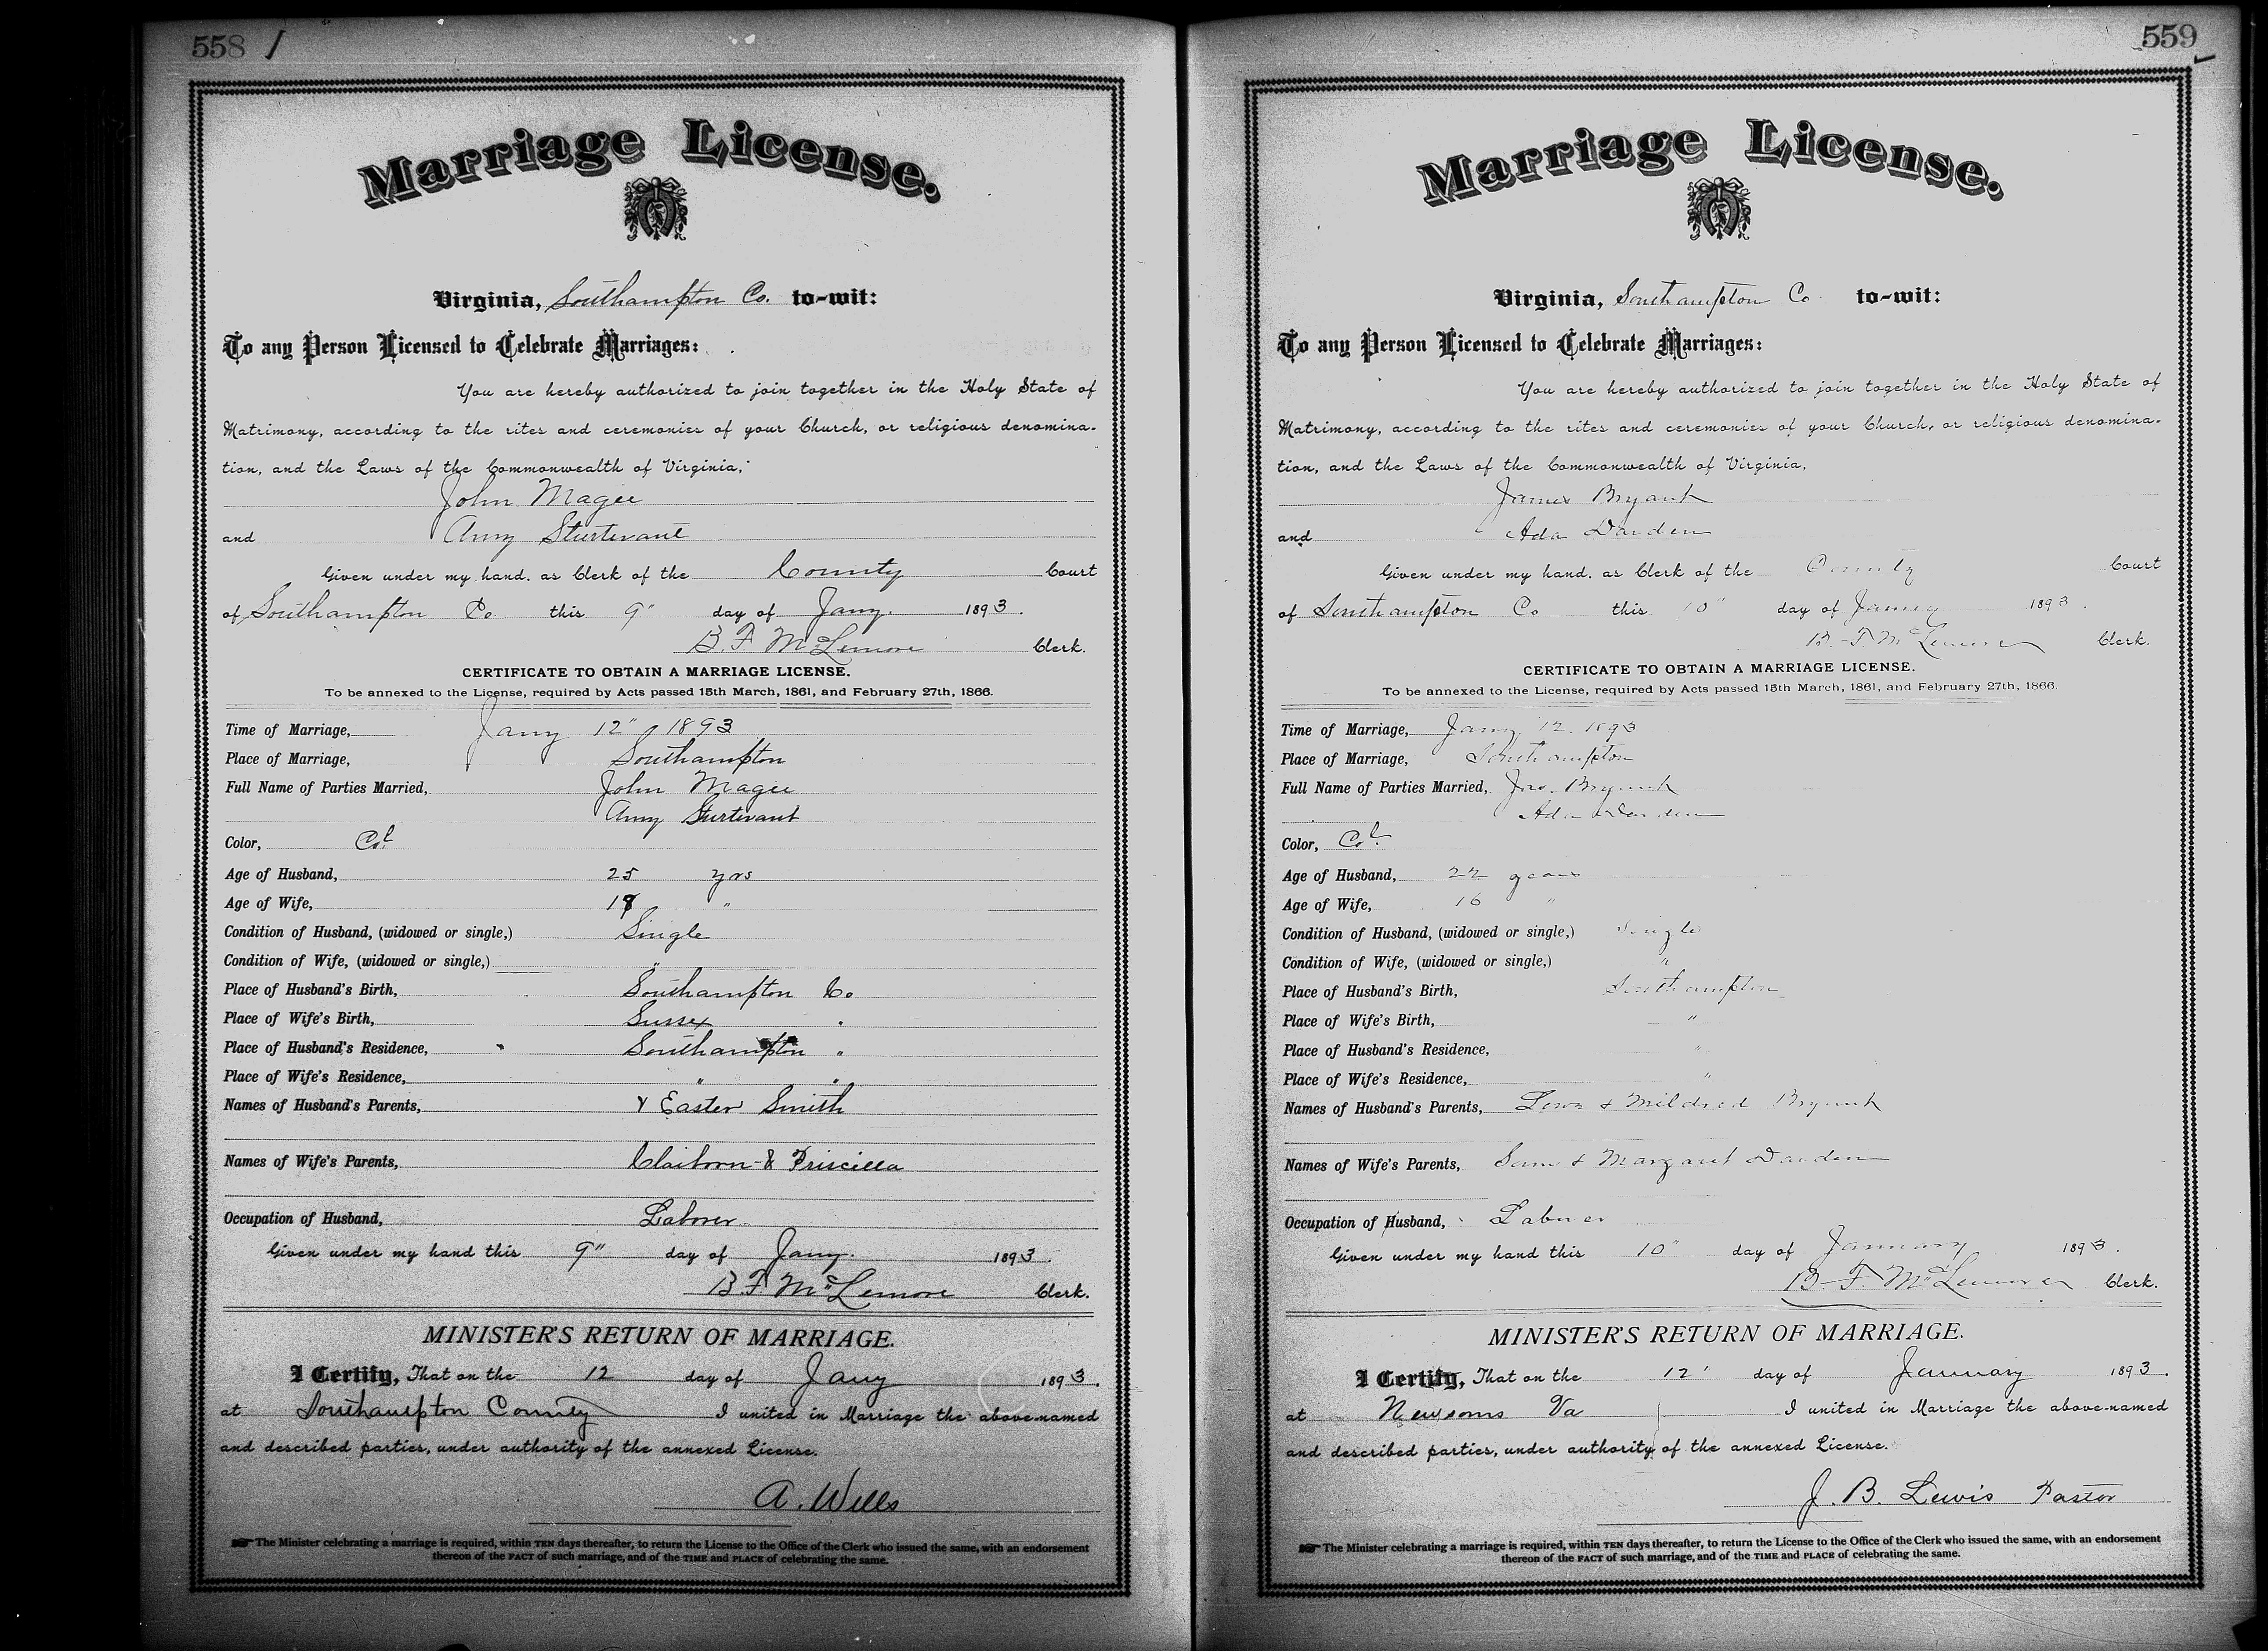 558 /
Marriage License.
Virginia, Southampton Co. to-wit:
To any Person Licensed to Celebrate Marriages:
You are hereby authorized to join together in the Holy State of
Matrimony, according to the rites and ceremonies of your Church, or religious denomina-
tion, and the Laws of the Commonwealth of Virginia,
John Magee
and Amy Sturtevant
Given under my hand, as Clerk of the County Court
of Southampton Co. this 9" day of Jany. 1893.
B. F. McLemore Clerk.
CERTIFICATE TO OBTAIN A MARRIAGE LICENSE.
To be annexed to the License, required by Acts passed 15th March, 1861, and February 27th, 1866.
Time of Marriage, Jany 12" 1893
Place of Marriage, Southampton
Full Name of Parties Married, John Magee
Amy Sturtevant
Color, Col
Age of Husband, 25 yrs
Age of Wife, 18 "
Condition of Husband, (widowed or single,) Single
Condition of Wife, (widowed or single,) "
Place of Husband's Birth, Southampton Co
Place of Wife's Birth, Sussex "
Place of Husband's Residence, Southampton "
Place of Wife's Residence, " "
Names of Husband's Parents, & Easter Smith
Names of Wife's Parents, Claiborn & Priscilla
Occupation of Husband, Laborer
Given under my hand this 9" day of Jany. 1893.
B. F. McLemore Clerk.
MINISTER'S RETURN OF MARRIAGE.
I Certify, That on the 12 day of Jany 1893.
at Southampton County I united in Marriage the above-named
and described parties, under authority of the annexed License.
A. Wells
The Minister celebrating a marriage is required, within TEN days thereafter, to return the License to the Office of the Clerk who issued the same, with an endorsement
thereon of the FACT of such marriage, and of the TIME and PLACE of celebrating the same.
559
Marriage License.
Virginia, Southampton Co. to-wit:
To any Person Licensed to Celebrate Marriages:
You are hereby authorized to join together in the Holy State of
Matrimony, according to the rites and ceremonies of your Church, or religious denomina-
tion, and the Laws of the Commonwealth of Virginia,
James Bryant
and Ada Darden
Given under my hand, as Clerk of the County Court
of Southampton Co this 10" day of Jany 1893.
B. F. McLemore Clerk.
CERTIFICATE TO OBTAIN A MARRIAGE LICENSE.
To be annexed to the License, required by Acts passed 15th March, 1861, and February 27th, 1866.
Time of Marriage, Jany 12. 1893
Place of Marriage, Southampton
Full Name of Parties Married, Jas. Bryant
Ada Darden
Color, Col.
Age of Husband, 22 years
Age of Wife, 16 "
Condition of Husband, (widowed or single,) Single
Condition of Wife, (widowed or single,) "
Place of Husband's Birth, Southampton
Place of Wife's Birth, "
Place of Husband's Residence, "
Place of Wife's Residence, "
Names of Husband's Parents, & Mildred Bryant
Names of Wife's Parents, Sam & Margaret Darden
Occupation of Husband, Laborer
Given under my hand this 10" day of January 1893.
B. F. McLemore Clerk.
MINISTER'S RETURN OF MARRIAGE.
I Certify, That on the 12' day of January 1893.
at Newsoms Va I united in Marriage the above-named
and described parties, under authority of the annexed License.
J. B. Lewis Pastor
The Minister celebrating a marriage is required, within TEN days thereafter, to return the License to the Office of the Clerk who issued the same, with an endorsement
thereon of the FACT of such marriage, and of the TIME and PLACE of celebrating the same.